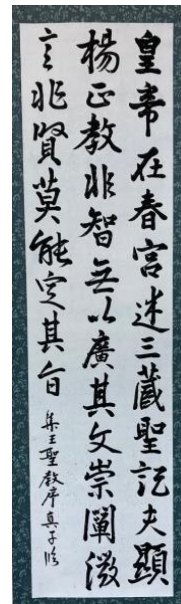 皇帝在春宮述三藏聖記夫顯
楊正教非智無以廣其文崇闡微
言非賢莫能定其旨 集王聖教序真子臨